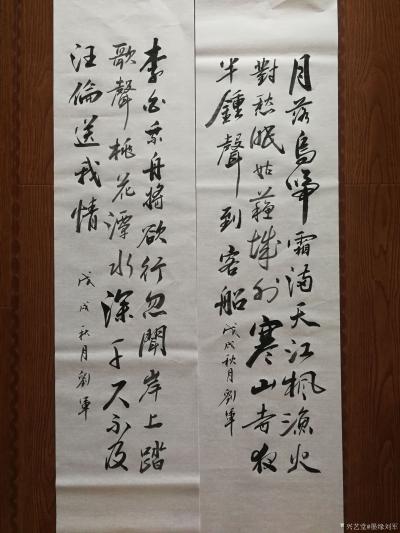 月落烏啼霜滿天江楓漁火
對愁眠姑蘇城外寒山寺夜
半鍾聲到客船
戊戌秋月劉軍
李白乘舟將欲行忽聞岸上踏
歌聲桃花潭水深千尺不及
汪倫送我情
戊戌秋月劉軍
兴艺堂#墨缘刘军